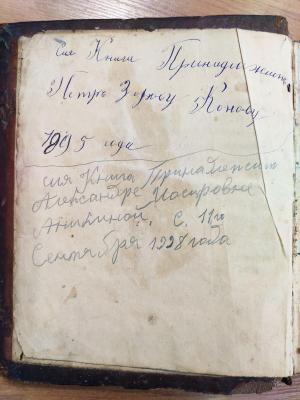 Сия Книга Принадлежит
Петру
года
сия Книга Принадлежит
Александре Иосифовне
Аникиной. С. 11го
Сентября 1928 года